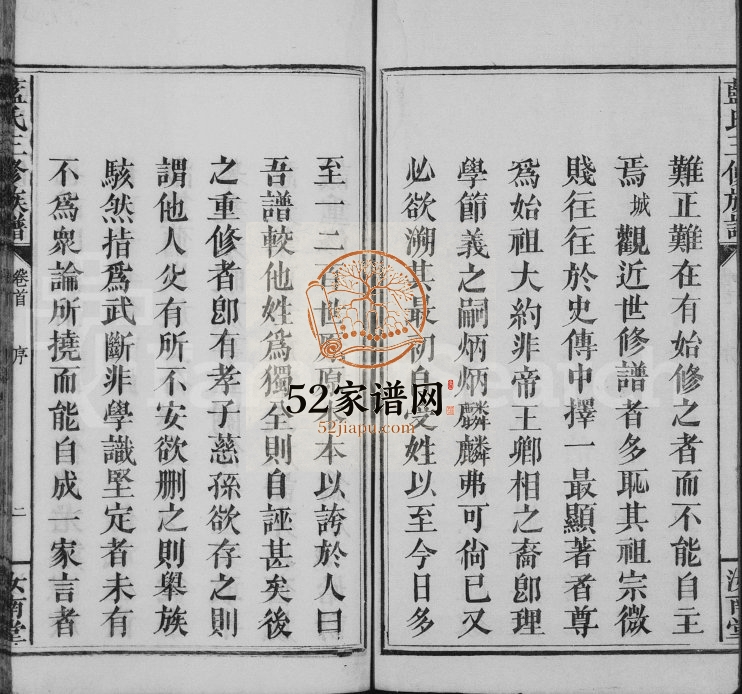 藍氏三修族譜
難正難在有始修之者而不能自主
焉城觀近世修譜者多恥其祖宗微
賤往往於史傳中擇一最顯著者尊
爲始祖大約非帝王卿相之裔卽理
學節義之嗣炳炳麟麟弗可尙已又
必欲溯其最初自受姓以至今日多
汝南堂
至一二百世原原本本以誇於人曰
吾譜較他姓爲獨全則自誣甚矣後
之重修者卽有孝子慈孫欲存之則
謂他人父有所不安欲刪之則舉族
駭然指爲武斷非學識堅定者未有
不爲衆論所撓而能自成一家言者
藍氏三修族譜
卷首
序
二
汝南堂
52家谱网
52jiapu.com